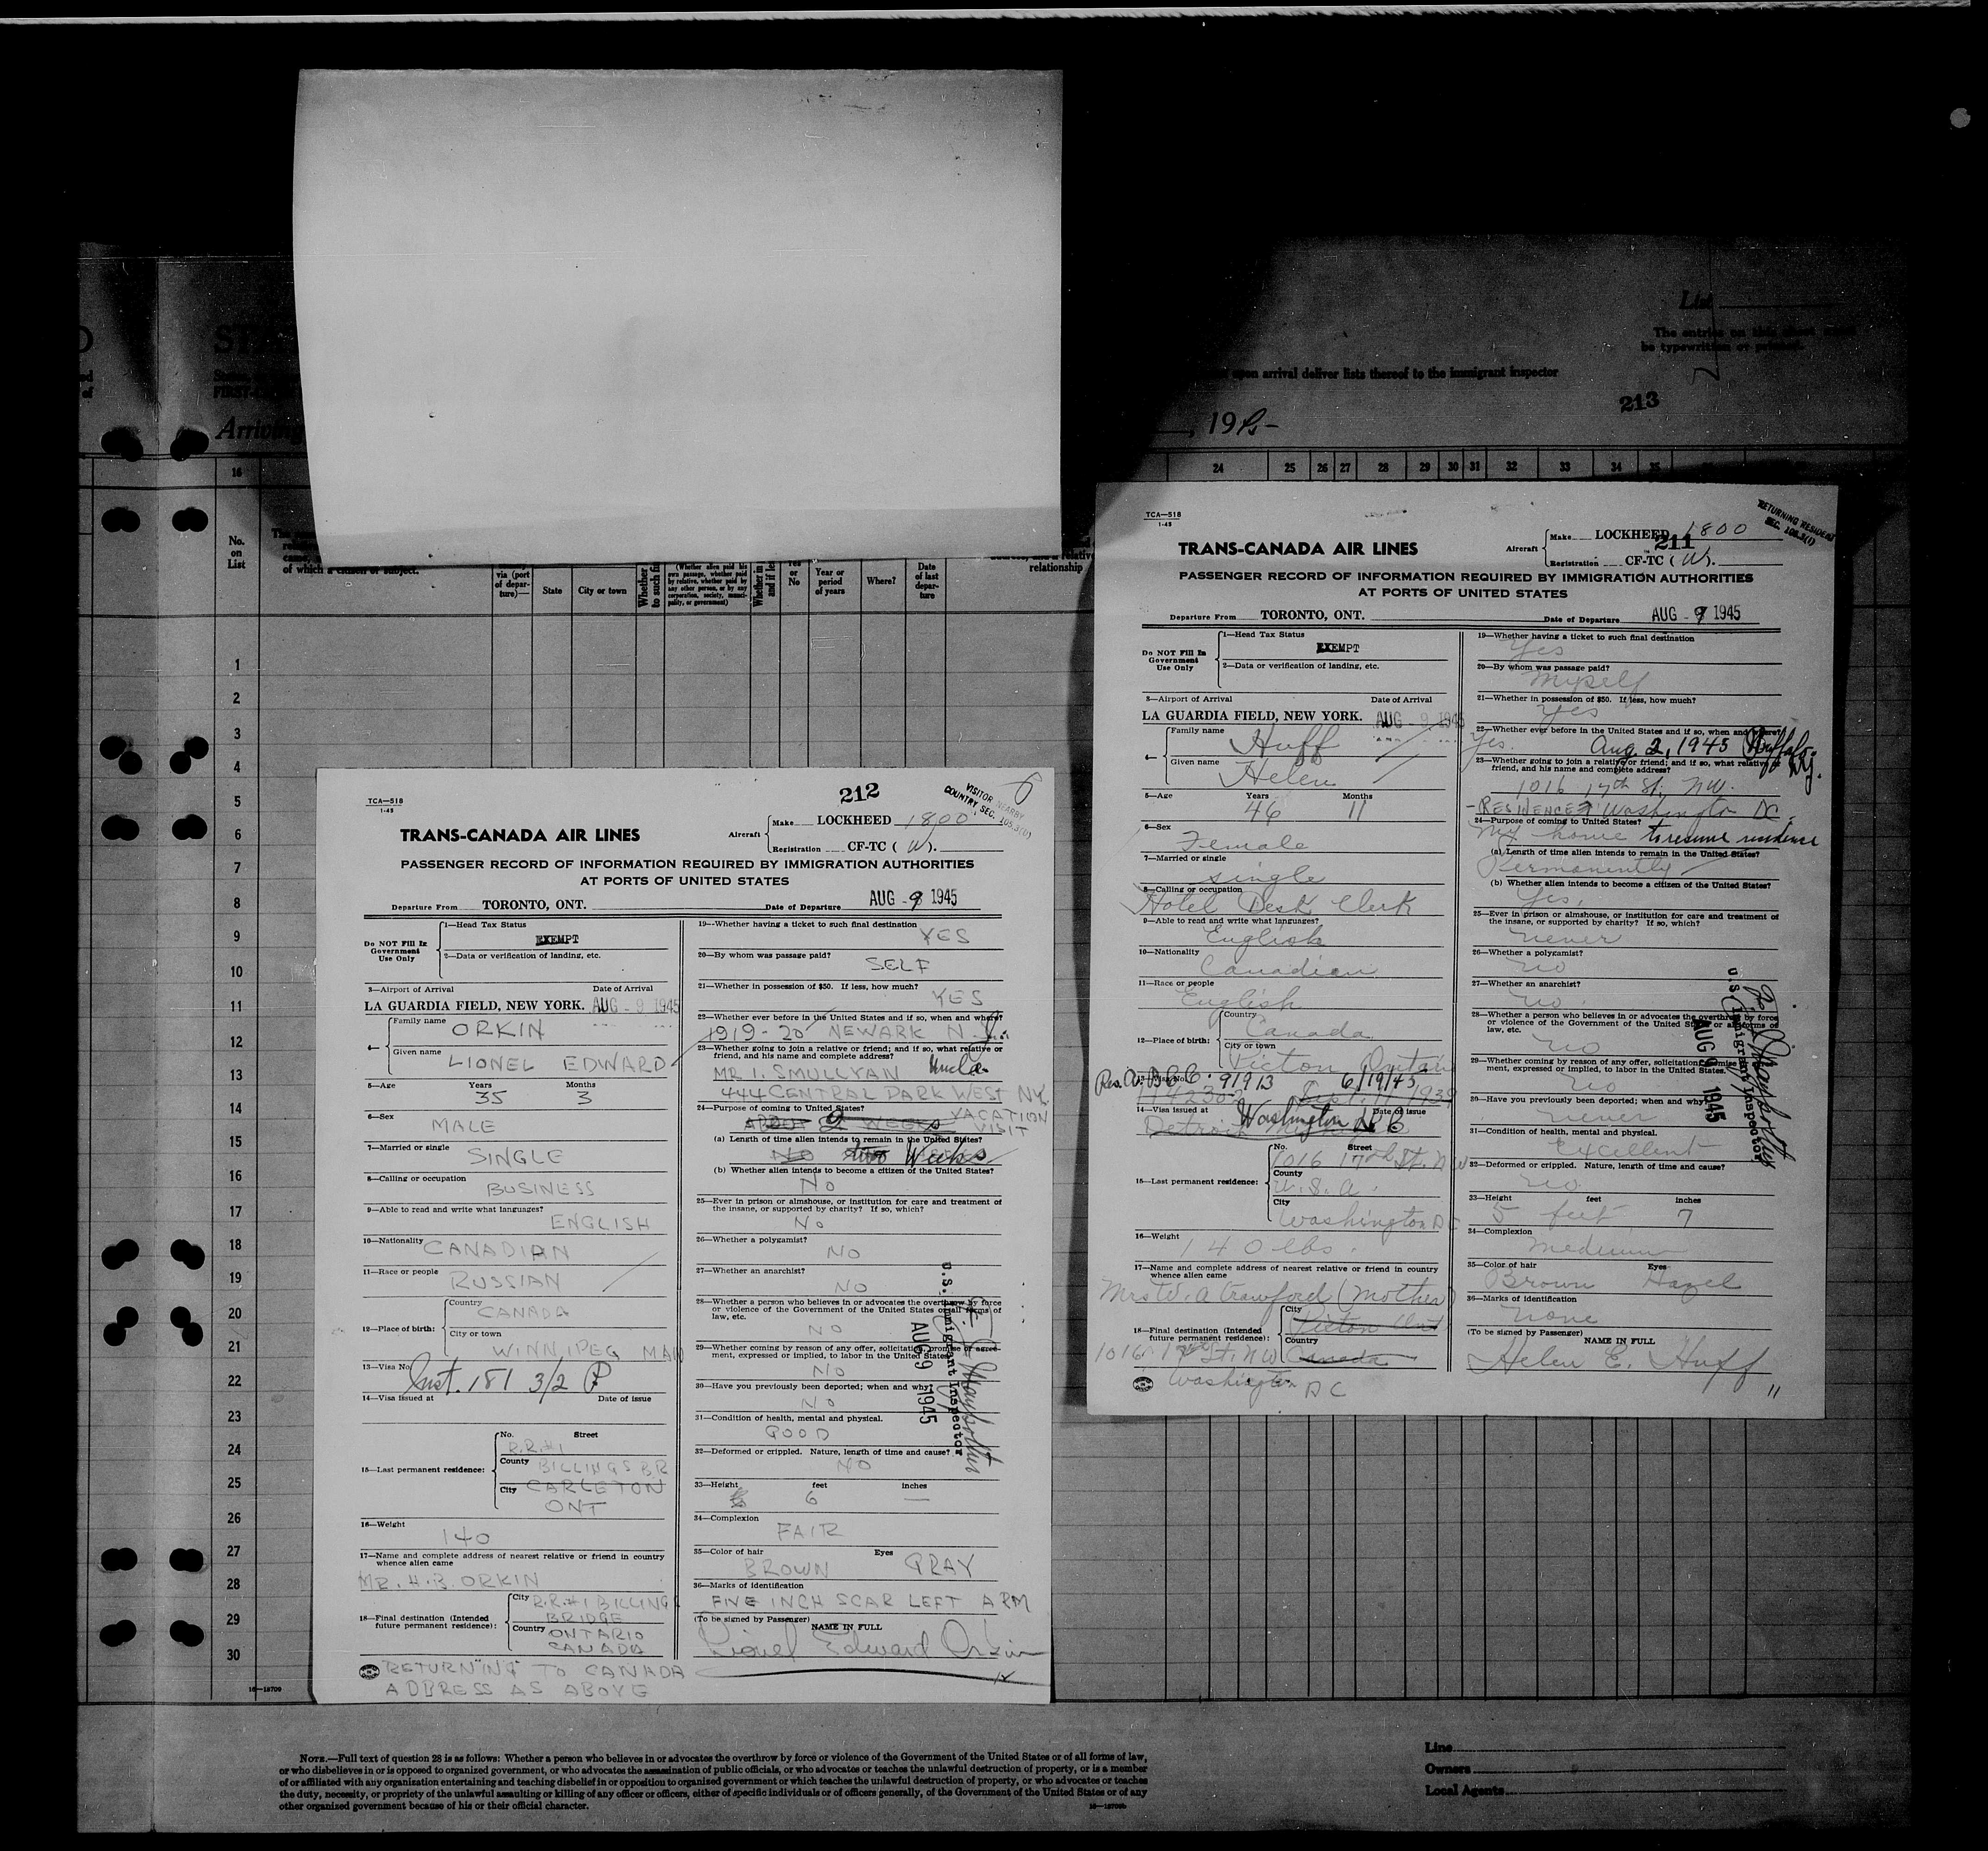 List
The entries on this sheet must
be typewritten or printed.
upon arrival deliver lists thereof to the immigrant inspector
213
Arriving
, 19
16
24 25 26 27 28 29 30 31 32 33 34 35
No.
on
List
of which a citizen or subject.
via (port
of depar-
ture)—
State
City or town
Whether
to such fi
(Whether alien paid his
own passage, whether paid
by relative, whether paid by
any other person, or by any
corporation, society, munici-
pality, or government)
Whether in
Yes
or
No
Year or
period
of years
Where?
Date
of last
depar-
ture
relationship
1
2
3
4
5
6
7
8
9
10
11
12
13
14
15
16
17
18
19
20
21
22
23
24
25
26
27
28
29
30
212
6
VISITOR NEARBY
COUNTRY SEC. 105.3(U)
TCA—518
1-45
TRANS-CANADA AIR LINES
Aircraft
Make LOCKHEED 1800
Registration CF-TC (W).
PASSENGER RECORD OF INFORMATION REQUIRED BY IMMIGRATION AUTHORITIES
AT PORTS OF UNITED STATES
Departure From TORONTO, ONT. Date of Departure AUG - 9 1945
Do NOT Fill In
Government
Use Only
1—Head Tax Status
EXEMPT
2—Data or verification of landing, etc.
3—Airport of Arrival Date of Arrival
LA GUARDIA FIELD, NEW YORK. AUG - 9 1945
4— Family name ORKIN
Given name LIONEL EDWARD
5—Age Years Months
35 3
6—Sex
MALE
7—Married or single
SINGLE
8—Calling or occupation
BUSINESS
9—Able to read and write what languages?
ENGLISH
10—Nationality CANADIAN
11—Race or people
RUSSIAN
12—Place of birth: Country
CANADA
City or town
WINNIPEG MAN
13—Visa No.
Inst. 181 3/2 P
14—Visa issued at Date of issue
15—Last permanent residence:
No. Street
R.R.#1
County BILLINGS BR
City CARLETON
ONT
16—Weight
140
17—Name and complete address of nearest relative or friend in country
whence alien came
MR. H.B. ORKIN
18—Final destination (Intended
future permanent residence):
City R.R.#1 BILLINGS
BRIDGE
Country ONTARIO
CANADA
RETURNING TO CANADA
ADDRESS AS ABOVE
19—Whether having a ticket to such final destination
YES
20—By whom was passage paid?
SELF
21—Whether in possession of $50. If less, how much?
YES
22—Whether ever before in the United States and if so, when and where?
1919-20 NEWARK N.J.
23—Whether going to join a relative or friend; and if so, what relative or
friend, and his name and complete address?
MR I. SMULLYAN Uncle
444 CENTRAL PARK WEST NY.
24—Purpose of coming to United States?
ABOUT 2 WEEKS VACATION
VISIT
(a) Length of time alien intends to remain in the United States?
NO two Weeks
(b) Whether alien intends to become a citizen of the United States?
NO
25—Ever in prison or almshouse, or institution for care and treatment of
the insane, or supported by charity? If so, which?
NO
26—Whether a polygamist?
NO
27—Whether an anarchist?
NO
28—Whether a person who believes in or advocates the overthrow by force
or violence of the Government of the United States or all forms of
law, etc.
NO
29—Whether coming by reason of any offer, solicitation, promise or agree-
ment, expressed or implied, to labor in the United States
NO
30—Have you previously been deported; when and why?
NO
31—Condition of health, mental and physical.
GOOD
32—Deformed or crippled. Nature, length of time and cause?
NO
33—Height feet inches
6 —
34—Complexion
FAIR
35—Color of hair Eyes
BROWN GRAY
36—Marks of identification
FIVE INCH SCAR LEFT ARM
(To be signed by Passenger)
NAME IN FULL
Lionel Edward Orkin
U.S. Immigrant Inspector
AUG 9 1945
RETURNING RESIDENT
SEC. 105.3(I)
TCA—518
1-45
TRANS-CANADA AIR LINES
Aircraft
Make LOCKHEED 1800
211
Registration CF-TC (W).
PASSENGER RECORD OF INFORMATION REQUIRED BY IMMIGRATION AUTHORITIES
AT PORTS OF UNITED STATES
Departure From TORONTO, ONT. Date of Departure AUG - 9 1945
Do NOT Fill In
Government
Use Only
1—Head Tax Status
EXEMPT
2—Data or verification of landing, etc.
3—Airport of Arrival Date of Arrival
LA GUARDIA FIELD, NEW YORK. AUG - 9 1945
4— Family name Huff
Given name Helen
5—Age Years Months
46 11
6—Sex
Female
7—Married or single
single
8—Calling or occupation
Hotel Desk Clerk
9—Able to read and write what languages?
English
10—Nationality
Canadian
11—Race or people
English
12—Place of birth: Country
Canada
City or town
Picton Ontario
Res. 91913 6/19/43
Sept. 11 1939
14—Visa issued at Date of issue
Washington DC
Detroit
15—Last permanent residence:
No. Street
1016 17th St. NW
County
U.S.A.
City
Washington DC
16—Weight
140 lbs.
17—Name and complete address of nearest relative or friend in country
whence alien came
Mrs W. A Crawford (Mother)
18—Final destination (Intended
future permanent residence):
City
Picton Ont
Country
Canada
1016 17th St. NW
Washington DC
19—Whether having a ticket to such final destination
Yes
20—By whom was passage paid?
Myself
21—Whether in possession of $50. If less, how much?
Yes
22—Whether ever before in the United States and if so, when and where?
Yes. Aug 2, 1945 Buffalo, NY.
23—Whether going to join a relative or friend; and if so, what relative or
friend, and his name and complete address?
1016 17th St. NW.
- RESIDENCE Washington DC.
24—Purpose of coming to United States?
My home to resume residence
(a) Length of time alien intends to remain in the United States?
Permanently
(b) Whether alien intends to become a citizen of the United States?
Yes,
25—Ever in prison or almshouse, or institution for care and treatment of
the insane, or supported by charity? If so, which?
never
26—Whether a polygamist?
no
27—Whether an anarchist?
no.
28—Whether a person who believes in or advocates the overthrow by force
or violence of the Government of the United States or all forms of
law, etc.
no
29—Whether coming by reason of any offer, solicitation, promise
ment, expressed or implied, to labor in the United States.
no
30—Have you previously been deported; when and why?
never
31—Condition of health, mental and physical.
Excellent
32—Deformed or crippled. Nature, length of time and cause?
no.
33—Height feet inches
5 feet 7
34—Complexion
Medium
35—Color of hair Eyes
Brown Hazel
36—Marks of identification
None
(To be signed by Passenger)
NAME IN FULL
Helen E. Huff
11
U.S. Immigrant Inspector
AUG 9 1945
16—18709
NOTE.—Full text of question 28 is as follows: Whether a person who believes in or advocates the overthrow by force or violence of the Government of the United States or of all forms of law,
or who disbelieves in or is opposed to organized government, or who advocates the assassination of public officials, or who advocates or teaches the unlawful destruction of property, or is a member
of or affiliated with any organization entertaining and teaching disbelief in or opposition to organized government or which teaches the unlawful destruction of property, or who advocates or teaches
the duty, necessity, or propriety of the unlawful assaulting or killing of any officer or officers, either of specific individuals or of officers generally, of the Government of the United States or of any
other organized government because of his or their official character.
Line
Owners
Local Agents